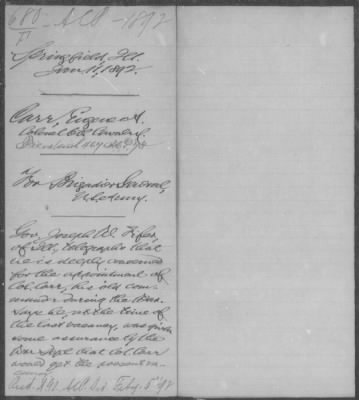 680 - ACP - 1892
F
Springfield, Ill.
Jan. 11, 1892.
Carr, Eugene A.
Colonel 6th Cavalry.
For Brigadier General,
U.S. Army.
Gov. Joseph W. Fifer,
of Ill., telegraphs that
he is deeply concerned
for the appointment of
Col. Carr, his old com-
mander during the War.
Says he, at the time of
the last vacancy, was given
some assurance by the
War Dept that Col. Carr
would get the present va-
Recd. A.G.O. ACP. Div. Feby. 5" 92